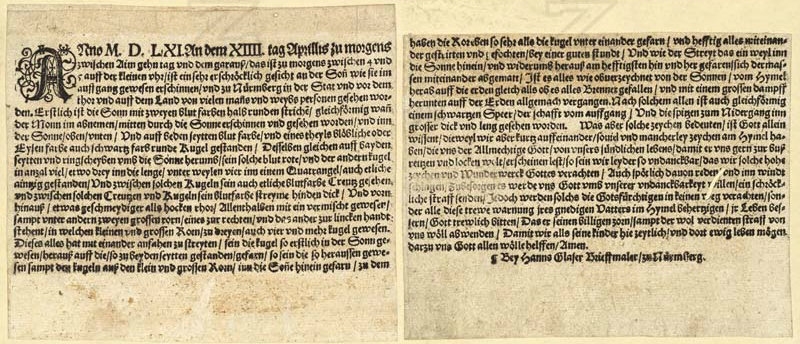 ANno M. D. LXI. An dem XIIII. tag Aprillis zu morgens
zwischen Aim gehn tag vnd dem garauß/das ist zu morgens zwischen 4 vnd
5 auff der kleinen vhr/ist ein sehr erschröcklich gesicht an der Soñ wie sie im
auffgang gewesen erschinnen/vnd zu Nürmberg in der Stat vnd vor dem
thor vnd auff dem Land von vielen mañs vnd weybs personen gesehen wor-
den. Erstlich ist die Sonn mit zweyen blut farben halb runden striche/gleichförmig wañ
der Monn im abnemen/mitten durch die Sonne erschinnen vnd gesehen worden/vnd inn
der Sonne/oben/vnten/Vnd auff beden seytten blut farbe/vnd eines theyls blöbliche oder
Eysen farbe auch schwartz farb runde Kugel gestanden/Deßselben gleichen auff bayden
seytten vnd ringscheyben vmb die Sonne herumb/sein solche blut rote/vnd der andern kugel
in anzal viel/etwo drey inn die lenge/vnter weylen vier inn einem Quatrangel/auch etliche
ainzig gestanden/Vnd zwischen solchen Kugeln sein auch etliche blutfarbe Creutz gesehen/
vnd zwischen solchen Creutzen vnd Kugeln sein blutfarbe streyme hinden dick/Vnd vorn
hinauß/etwas geschmeydiger alls hocken rhor/Allenthalben mit ein vermischt gewesen/
sampt vnter andern zweyen grossen rorn/eines zur rechten/vnd das ander zur lincken handt
stehent/in welchen kleinen vnd grossen Rorn/zu dreyen/auch vier vnd mehr kugel gewesen.
Dieses alles hat mit einander anfahen zu streyten/sein die kugel so erstlich in der Sonn ge-
wesen/herauß auff die/so zu beyden seytten gestanden/gefarn/so sein die so heraussen gewe-
sen sampt den kugeln auß den klein vnd grossen Rorn/inn die Soñe hinein gefarn/zu dem
haben die Roren so sehr alls die kugel vnter einander gefarn/vnd hefftig alles miteinan-
der gestritten vnd gefochten/bey einer guten stundt/Vnd wie der Streyt das ein weyl inn
die Sonne hinein/vnd widerumb herauß am hefftigsten hin vnd her gefaren/sich der mas-
sen miteinander abgematt/Ist es alles wie obuerzeychnet von der Sonnen/vom Hymel
herab auff die erden gleich alls ob es alles Brennet gefallen/vnd mit einem grossen dampff
herunten auff der Erden allgemach vergangen. Nach solchem allen ist auch gleichförmig
einem schwartzen Speer/der schafft vom auffgang/Vnd die spitzen zum Nidergang inn
grosser dick vnd lung gesehen worden. Was aber solche zeychen bedeuten/ist Gott allein
wissent/dieweyl wir aber kurtz auff einander/souiel vnd mancherley zeychen am Hymel ha-
ben/die vns der Allmechtige Gott/von vnsers sündlichen lebens/damit er vns gern zur buß
reitzen vnd locken wolt/erscheinen lest/so sein wir leyder so vndanckbar/das wir solche hohe
zeychen vnd Wunderwerck Gottes verachten/Auch spötlich dauon reden/vnd inn windt
schlagen/Zubesorgen es werde vns Gott vmb vnserer vndanckbarkeyt willen/ein schröck-
liche straff senden/Jedoch werden solchs die Gotsfürchtigen in keinen weg verachten/son-
der alle diese trewe warnung jres gnedigen Vatters im Hymel behertzigen/jr Leben bes-
sern/Gott trewlich bitten/Das er seinen billigen zorn/sampt der wol verdienten straff von
vns wöll abwenden/Damit wir alls seine kinder hie zeytlich/vnd dort ewig leben mögen
darzu vns Gott allen wölle helffen/Amen.
¶ Bey Hanns Glaser Brieffmaler/zu Nürmberg.